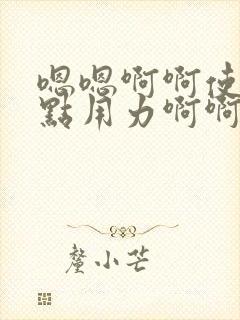 嗯嗯啊啊使
點用力啊啊
釐小芒